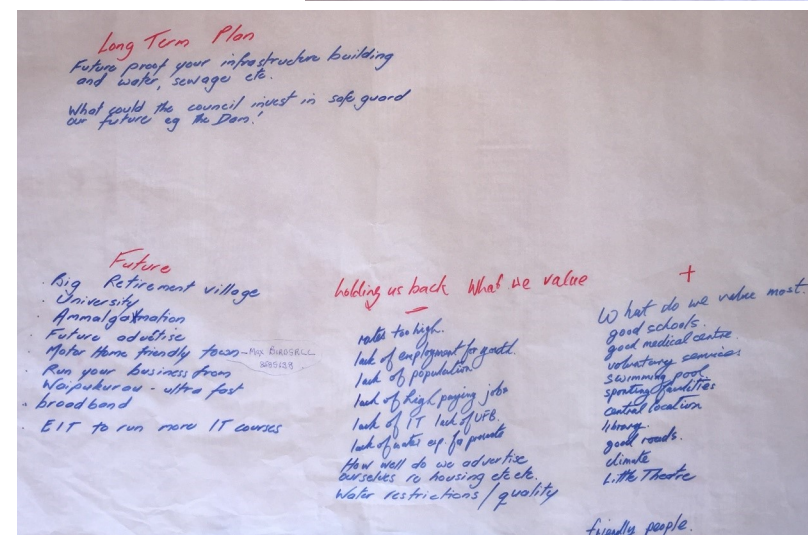 Long Term Plan
Future proof your infrastructure building
and water, sewage etc.
What could the council invest in safe guard
our future eg the Dam!
Future
. Big Retirement village
. University
. Ammalgamation
. Future advertise
. Motor Home friendly town - MAX BIRDSALL
. Run your business from
Waipukurau - ultra fast
. broadband
. EIT to run more IT courses
holding us back What we value
-
rates too high.
lack of employment for youth.
lack of population
lack of high paying jobs
lack of IT lack of UFB.
lack of water esp. for private
How well do we advertise
ourselves re housing etc etc.
Water restrictions / quality
+
What do we value most.
good schools.
good medical centre.
voluntary services
swimming pool
sporting facilities
central location
library.
good roads.
climate
Little Theatre
friendly people.